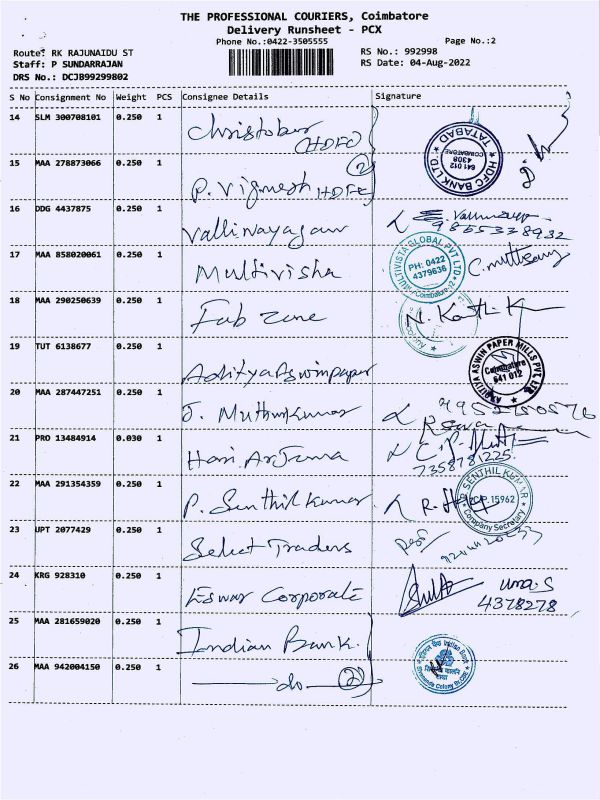 THE PROFESSIONAL COURIERS, Coimbatore
Delivery Runsheet - PCX
Phone No.:0422-3505555
Page No.:2
Route: RK RAJUNAIDU ST
RS No.: 992998
Staff: P SUNDARRAJAN
RS Date: 04-Aug-2022
DRS No.: DCJB99299802
S No Consignment No Weight PCS Consignee Details Signature
14 SLM 300708101 0.250 1 Christober (HDFC)
HDFC BANK LTD. TATABAD COIMBATORE 641 012 4308
15 MAA 278873066 0.250 1 P. Vignesh HDFC (2)
16 DDG 4437875 0.250 1 Vallinayagam
9865338932
17 MAA 858020061 0.250 1 Multivisha
MULTIVISTA GLOBAL PVT LTD PH: 0422 4379636 Coimbatore-12
18 MAA 290250639 0.250 1 Fab Zone N. Karthik
19 TUT 6138677 0.250 1 Aditya Aswin paper
ADITIYA ASWIN PAPER MILLS PVT. LTD. Coimbatore 641 012
20 MAA 287447251 0.250 1 J. Muthukumar
21 PRO 13484914 0.030 1 Hari Arjuna
7358781225
22 MAA 291354359 0.250 1 P. Senthil Kumar
SENTHIL KUMAR C.P. 15962 Company Secretary
23 UPT 2077429 0.250 1 Select Traders
24 KRG 928310 0.250 1 Eswar Corporate uma.S
4378278
25 MAA 281659020 0.250 1 Indian Bank.
26 MAA 942004150 0.250 1 do (2)
Indian Bank